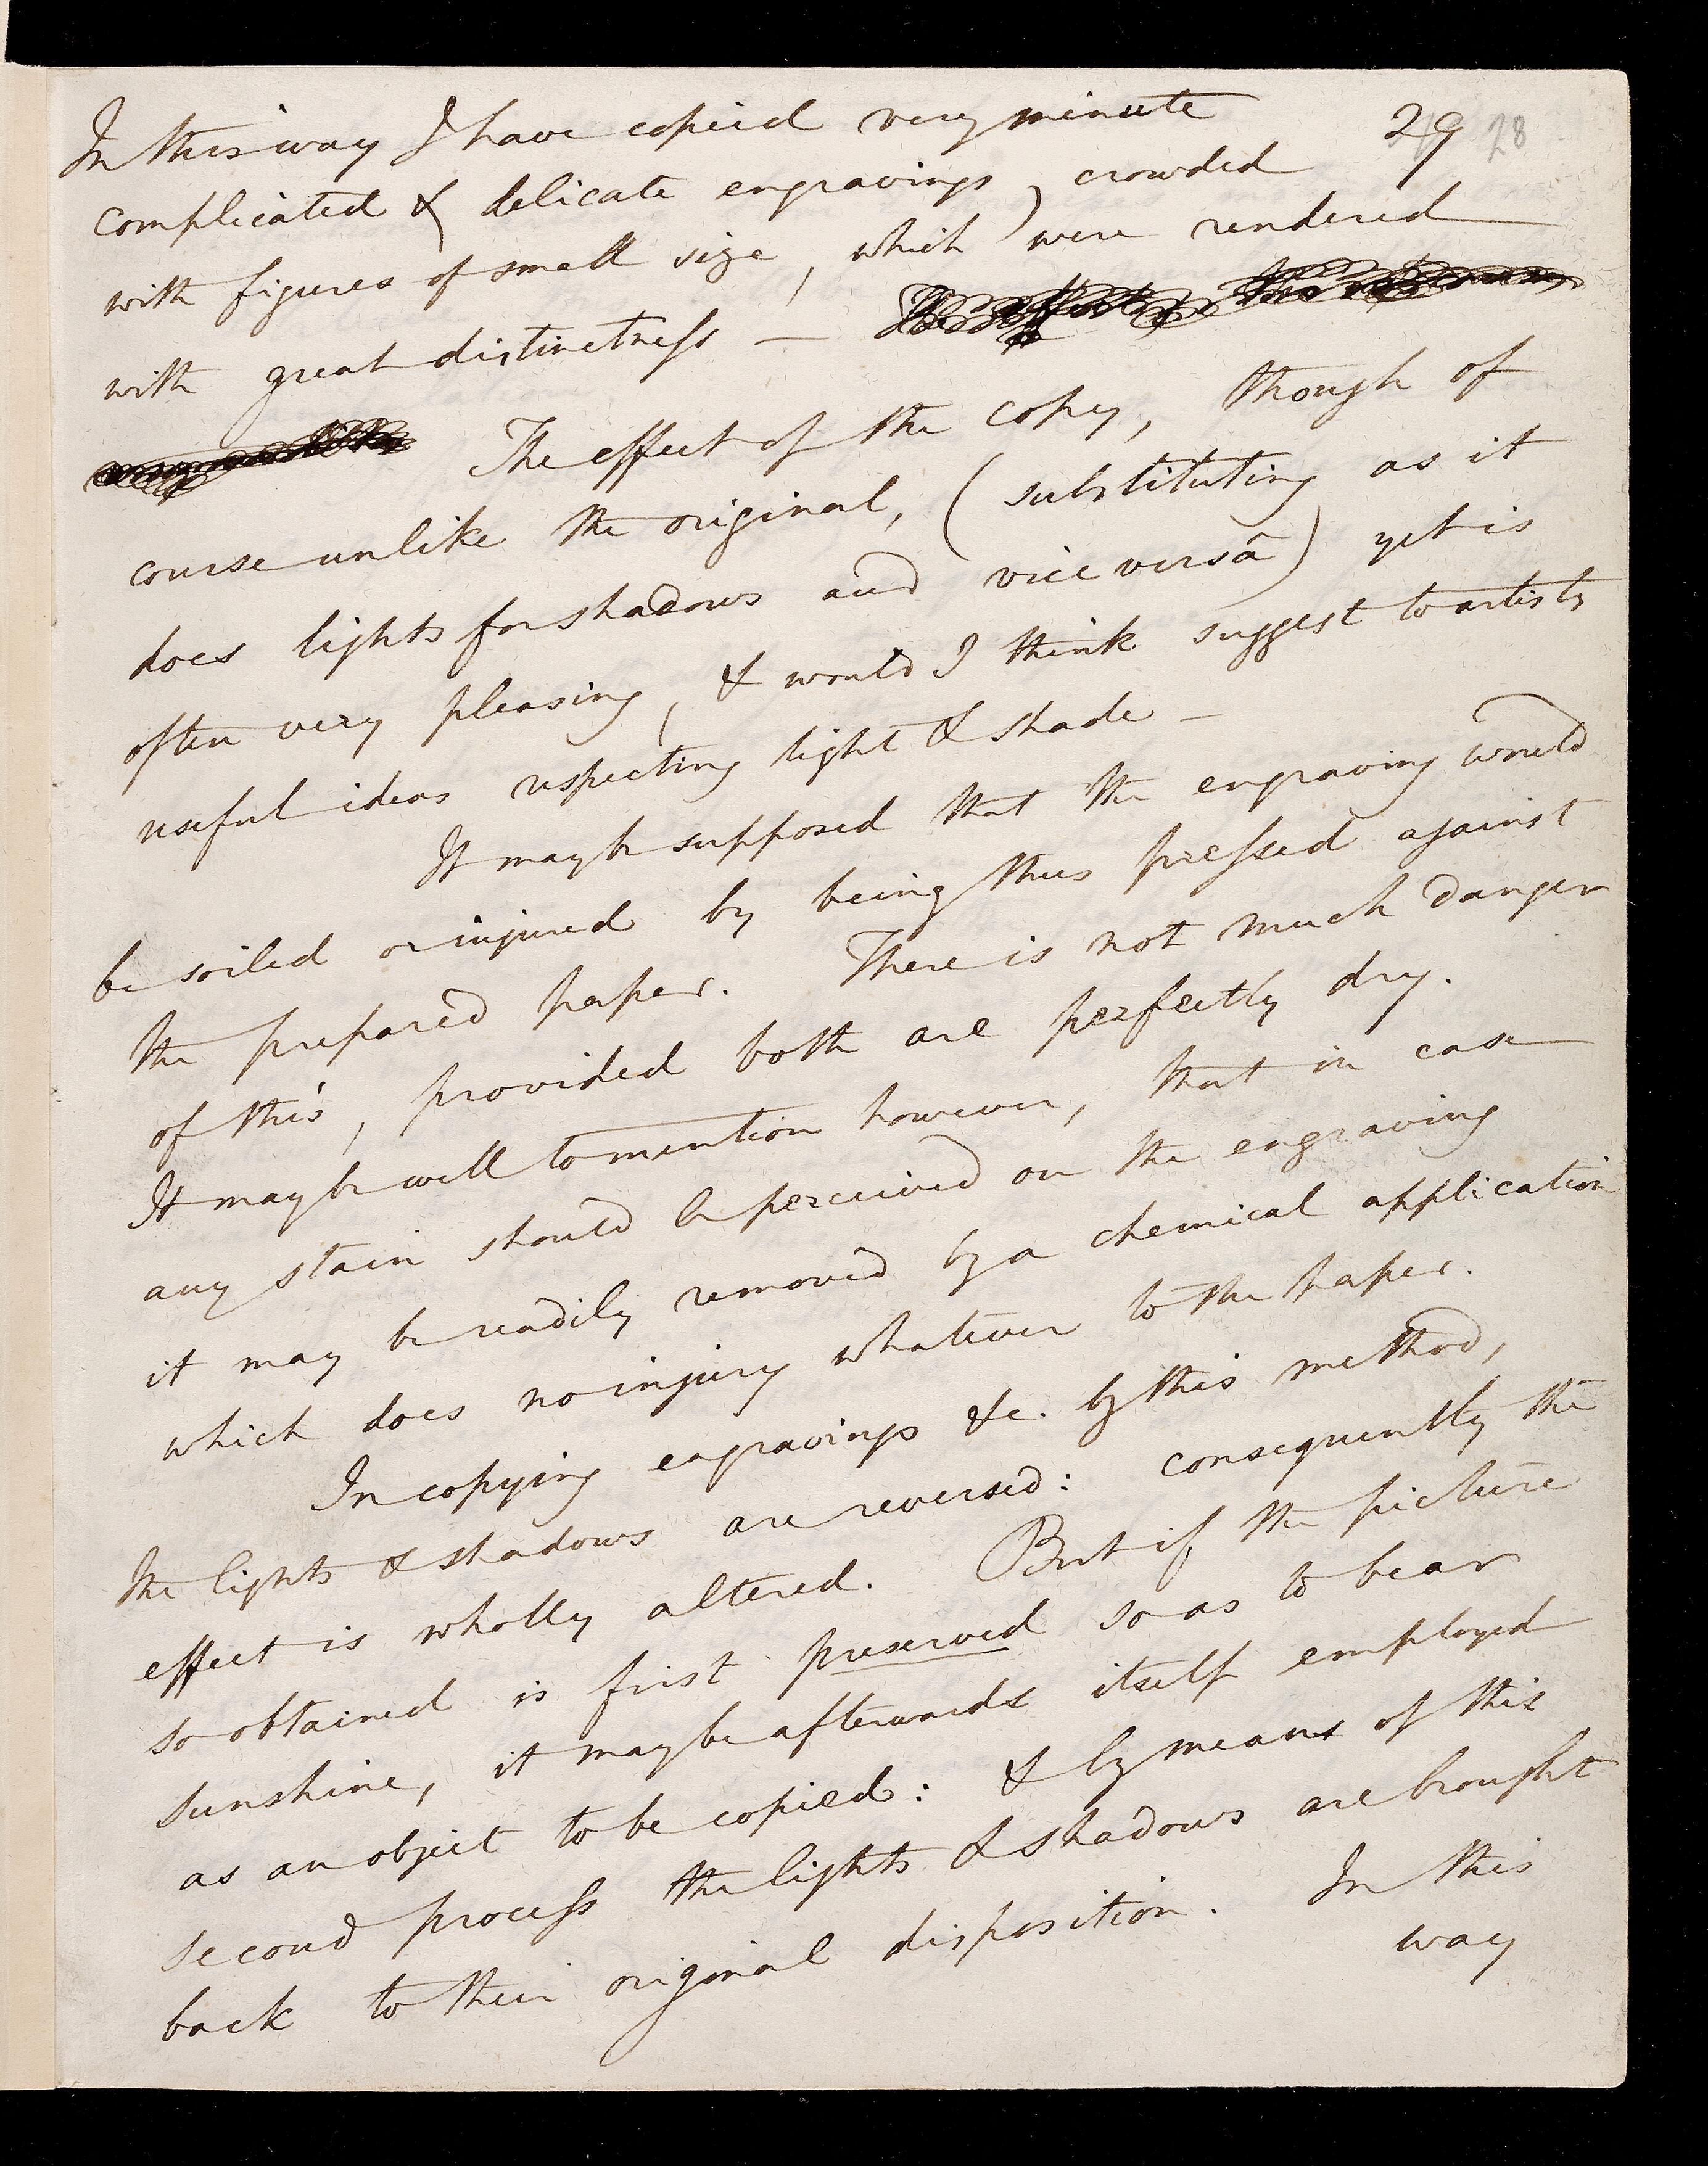 In this way I have copied very minute 29 28
complicated & delicate engravings, crowded
with figures of small size, which were rendered
with great distinctness — The effect of this
The effect of the copy, though of
course unlike the original, (substituting as it
does lights for shadows and vice versâ) yet is
often very pleasing, & would I think suggest to artists
useful ideas respecting light & shade —
It may be supposed that the engraving would
be soiled or injured by being thus pressed against
the prepared paper. There is not much danger
of this, provided both are perfectly dry.
It may be well to mention however, that in case
any stain should be perceived on the engraving
it may be readily removed by a chemical application
which does no injury whatever to the paper.
In copying engravings &c. by this method,
the lights & shadows are reversed: consequently the
effect is wholly altered. But if the picture
so obtained is first preserved so as to bear
sunshine, it may be afterwards itself employed
as an object to be copied: & by means of this
second process the lights & shadows are brought
back to their original disposition. In this
way